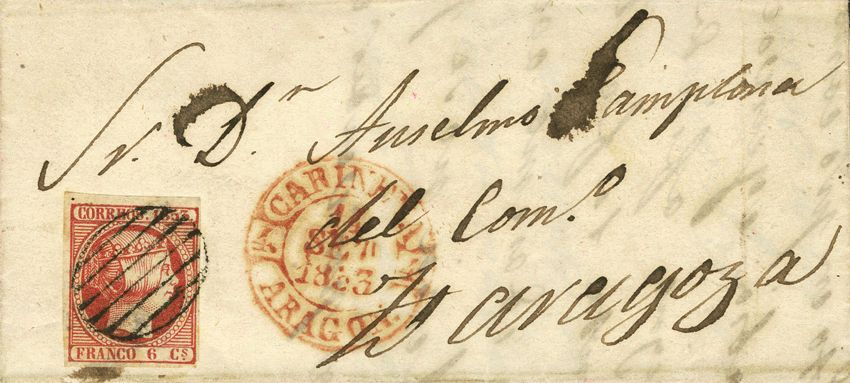 Sr. Dn Anselmo Pamplona
del Como
Zaragoza
CORREOS. 1853
FRANCO 6 Cs
CARIÑENA
1853
ARAGON